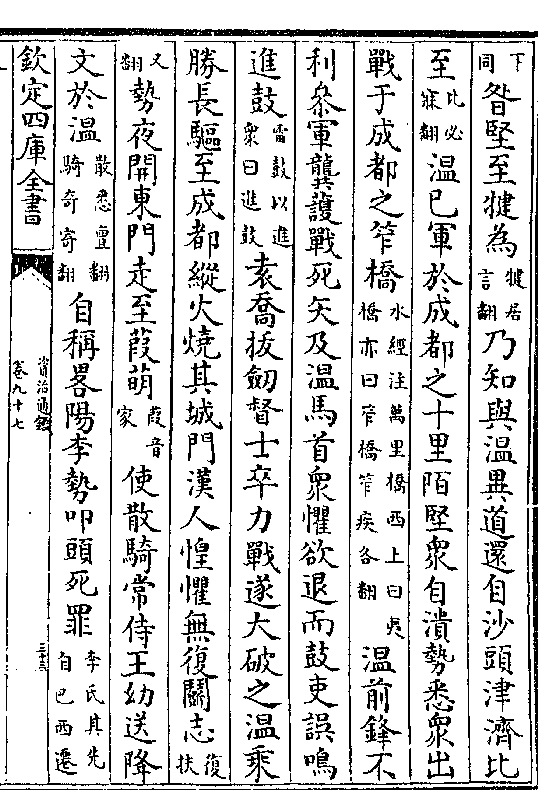 下同昝堅至犍為犍居言翻乃知與温異道還自沙頭津濟比
至比必寐翻温已軍於成都之十里陌堅衆自潰勢悉衆出
戰于成都之笮橋水經注萬里橋西上曰夷橋亦曰笮橋笮疾各翻温前鋒不
利叅軍龔護戰死矢及温馬首衆懼欲退而鼓吏誤鳴
進鼓雷鼓以進衆曰進鼓袁喬拔劒督士卒力戰遂大破之温乘
勝長驅至成都縱火燒其城門漢人惶懼無復鬭志復扶
又翻勢夜開東門走至葭萌葭音家使散騎常侍王幼送降
文於温散悉亶翻騎奇寄翻自稱畧陽李勢叩頭死罪李氏其先自巴西遷
欽定四庫全書
資治通鑑
卷九十七
三十三